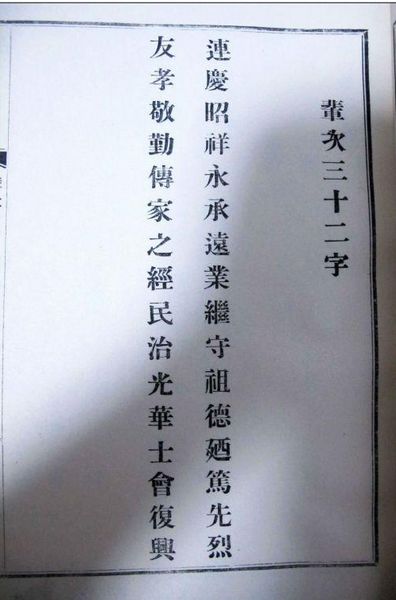 輩次三十二字
連慶昭祥永承遠業繼守祖德廼篤先烈
友孝敬勤傳家之經民治光華士會復興